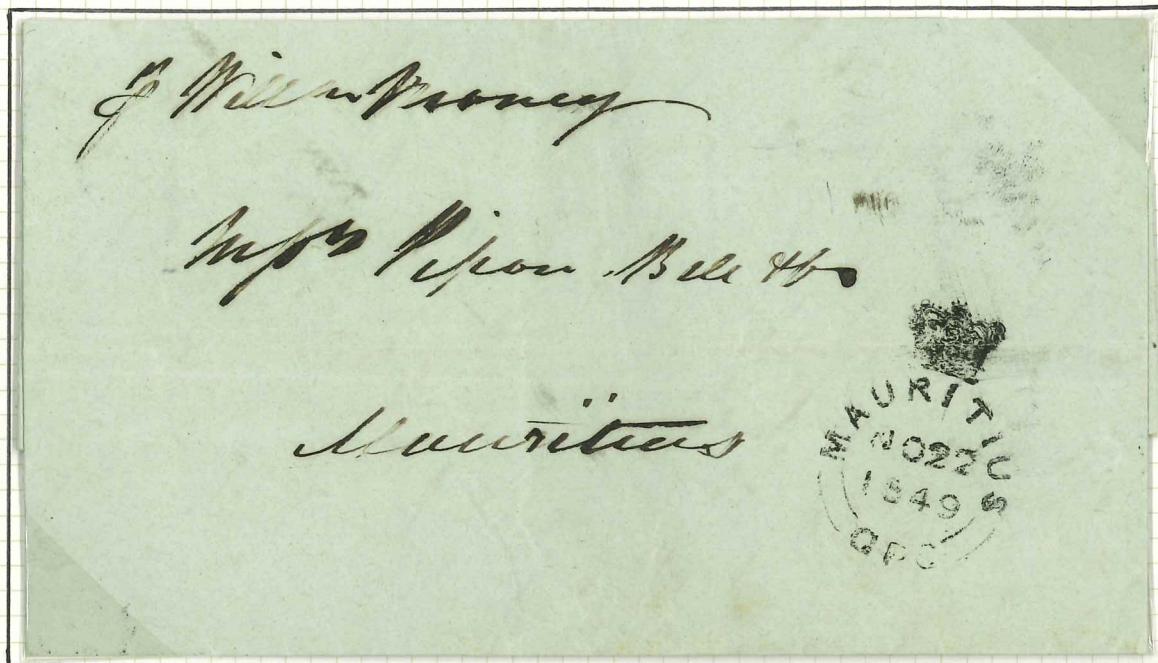 p Willm Money
Messrs Pipon Bell & Co
Mauritius
MAURITIUS
NO 22
1849
GPO